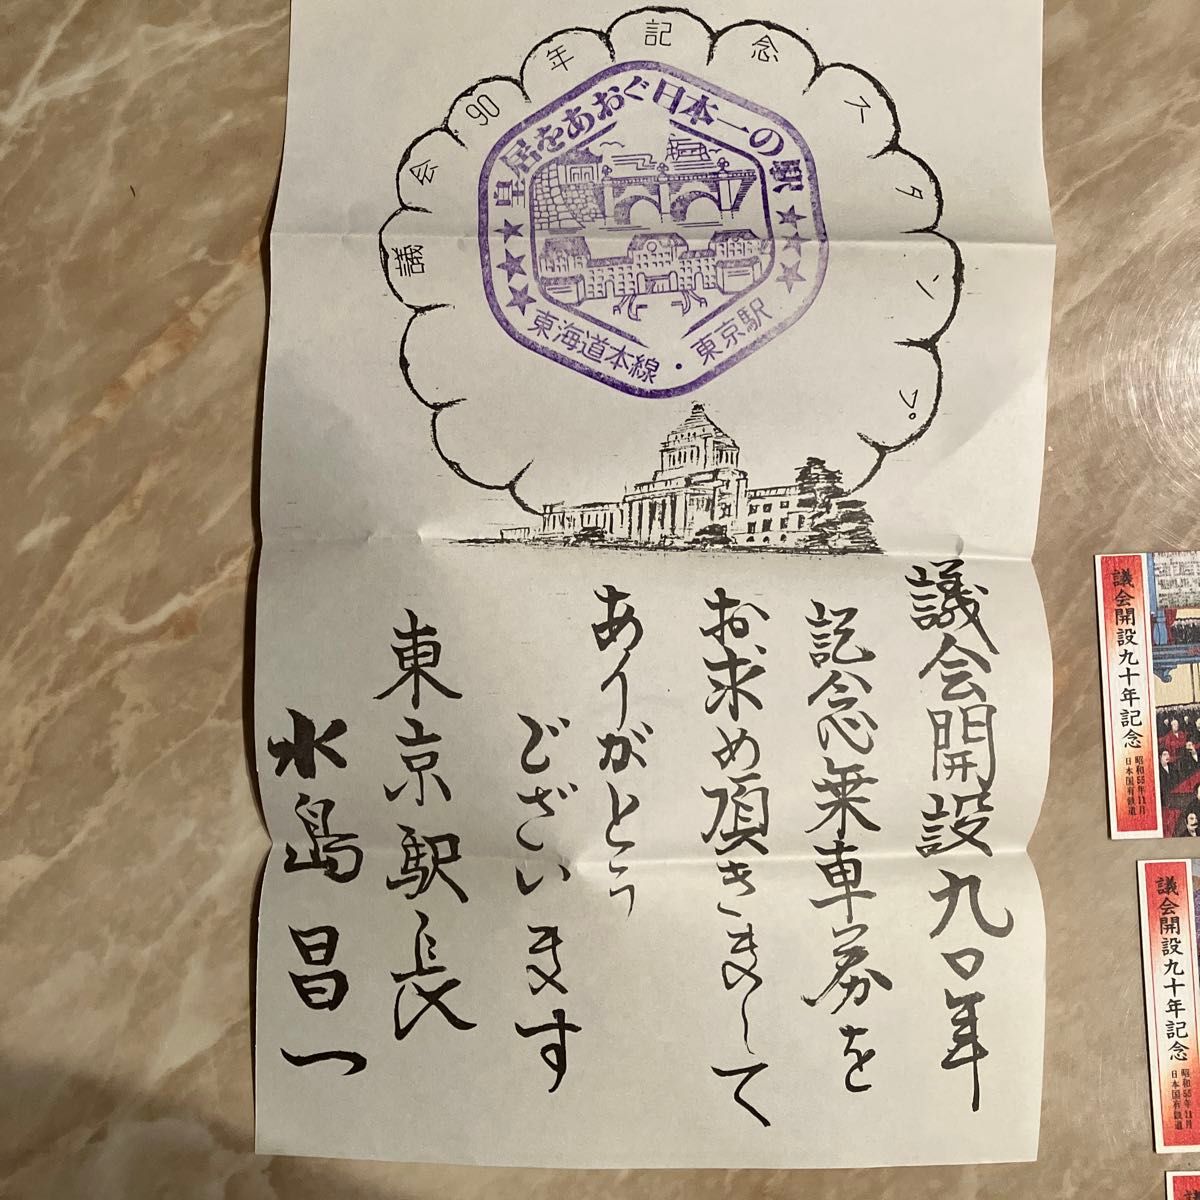 議会90年記念スタンプ
皇居をあおぐ日本一の駅
東海道本線・東京駅
議会開設九〇年
記念乗車券を
お求め頂きまして
ありがとう
ございます
東京駅長
水島昌一
議会開設九十年記念
昭和55年11月
日本国有鉄道
議会開設九十年記念
昭和55年11月
日本国有鉄道